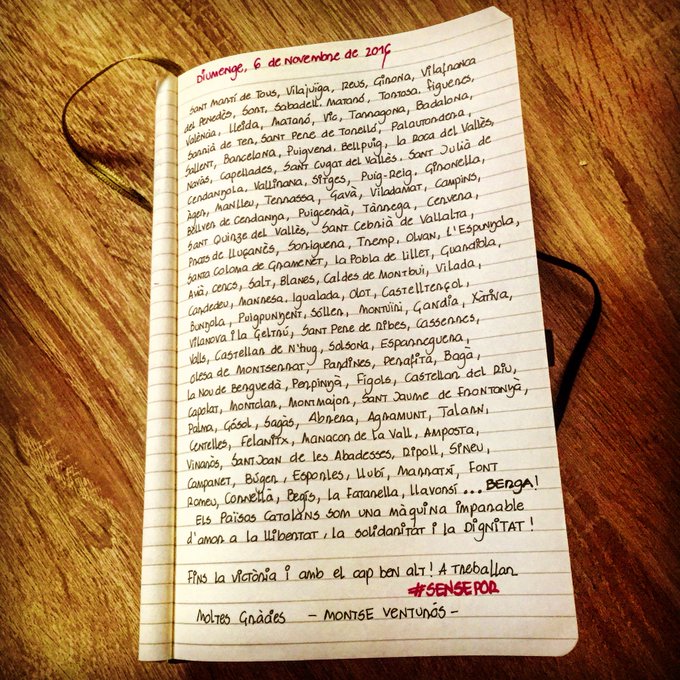 Diumenge, 6 de Novembre de 2016
Sant Martí de Tous, Vilajuïga, Reus, Girona, Vilafranca
del Penedès, Sort, Sabadell, Mataró, Tortosa, Figueres,
València, Lleida, Mataró, Vic, Tarragona, Badalona,
Sarrià de Ter, Sant Pere de Torelló, Palautordera,
Sallent, Barcelona, Puigverd, Bellpuig, la Roca del Vallès,
Navàs, Capellades, Sant Cugat del Vallès, Sant Julià de
Cerdanyola, Vallirana, Sitges, Puig-Reig, Gironella,
Àger, Manlleu, Terrassa, Gavà, Viladamat, Campins,
Bellver de Cerdanya, Puigcerdà, Tàrrega, Cervera,
Sant Quirze del Vallès, Sant Cebrià de Vallalta,
Prats de Lluçanès, Soriguera, Tremp, Olvan, l'Espunyola,
Santa Coloma de Gramenet, la Pobla de Lillet, Guardiola,
Avià, Cercs, Salt, Blanes, Caldes de Montbui, Vilada,
Cardedeu, Manresa, Igualada, Olot, Castellterçol,
Bunyola, Puigpunyent, Sóller, Montuïri, Gandia, Xàtiva,
Vilanova i la Geltrú, Sant Pere de Ribes, Casserres,
Valls, Castellar de N'hug, Solsona, Esparreguera,
Olesa de Montserrat, Pardines, Perafita, Bagà,
la Nou de Berguedà, Perpinyà, Fígols, Castellar del Riu,
Capolat, Montclar, Montmajor, Sant Jaume de Frontanyà,
Palma, Gósol, Sagàs, Abrera, Agramunt, Talarn,
Centelles, Felanitx, Manacor de la Vall, Amposta,
Vinaròs, Sant Joan de les Abadesses, Ripoll, Sineu,
Campanet, Búger, Esporles, Llubí, Marratxí, Font
Romeu, Cornellà, Begís, la Fatarella, Llavorsí ... BERGA!
Els Països Catalans som una màquina imparable
d'amor a la llibertat, la solidaritat i la dignitat!
Fins la victòria i amb el cap ben alt! A treballar
#SENSEPOR
Moltes Gràcies - Montse Venturós -